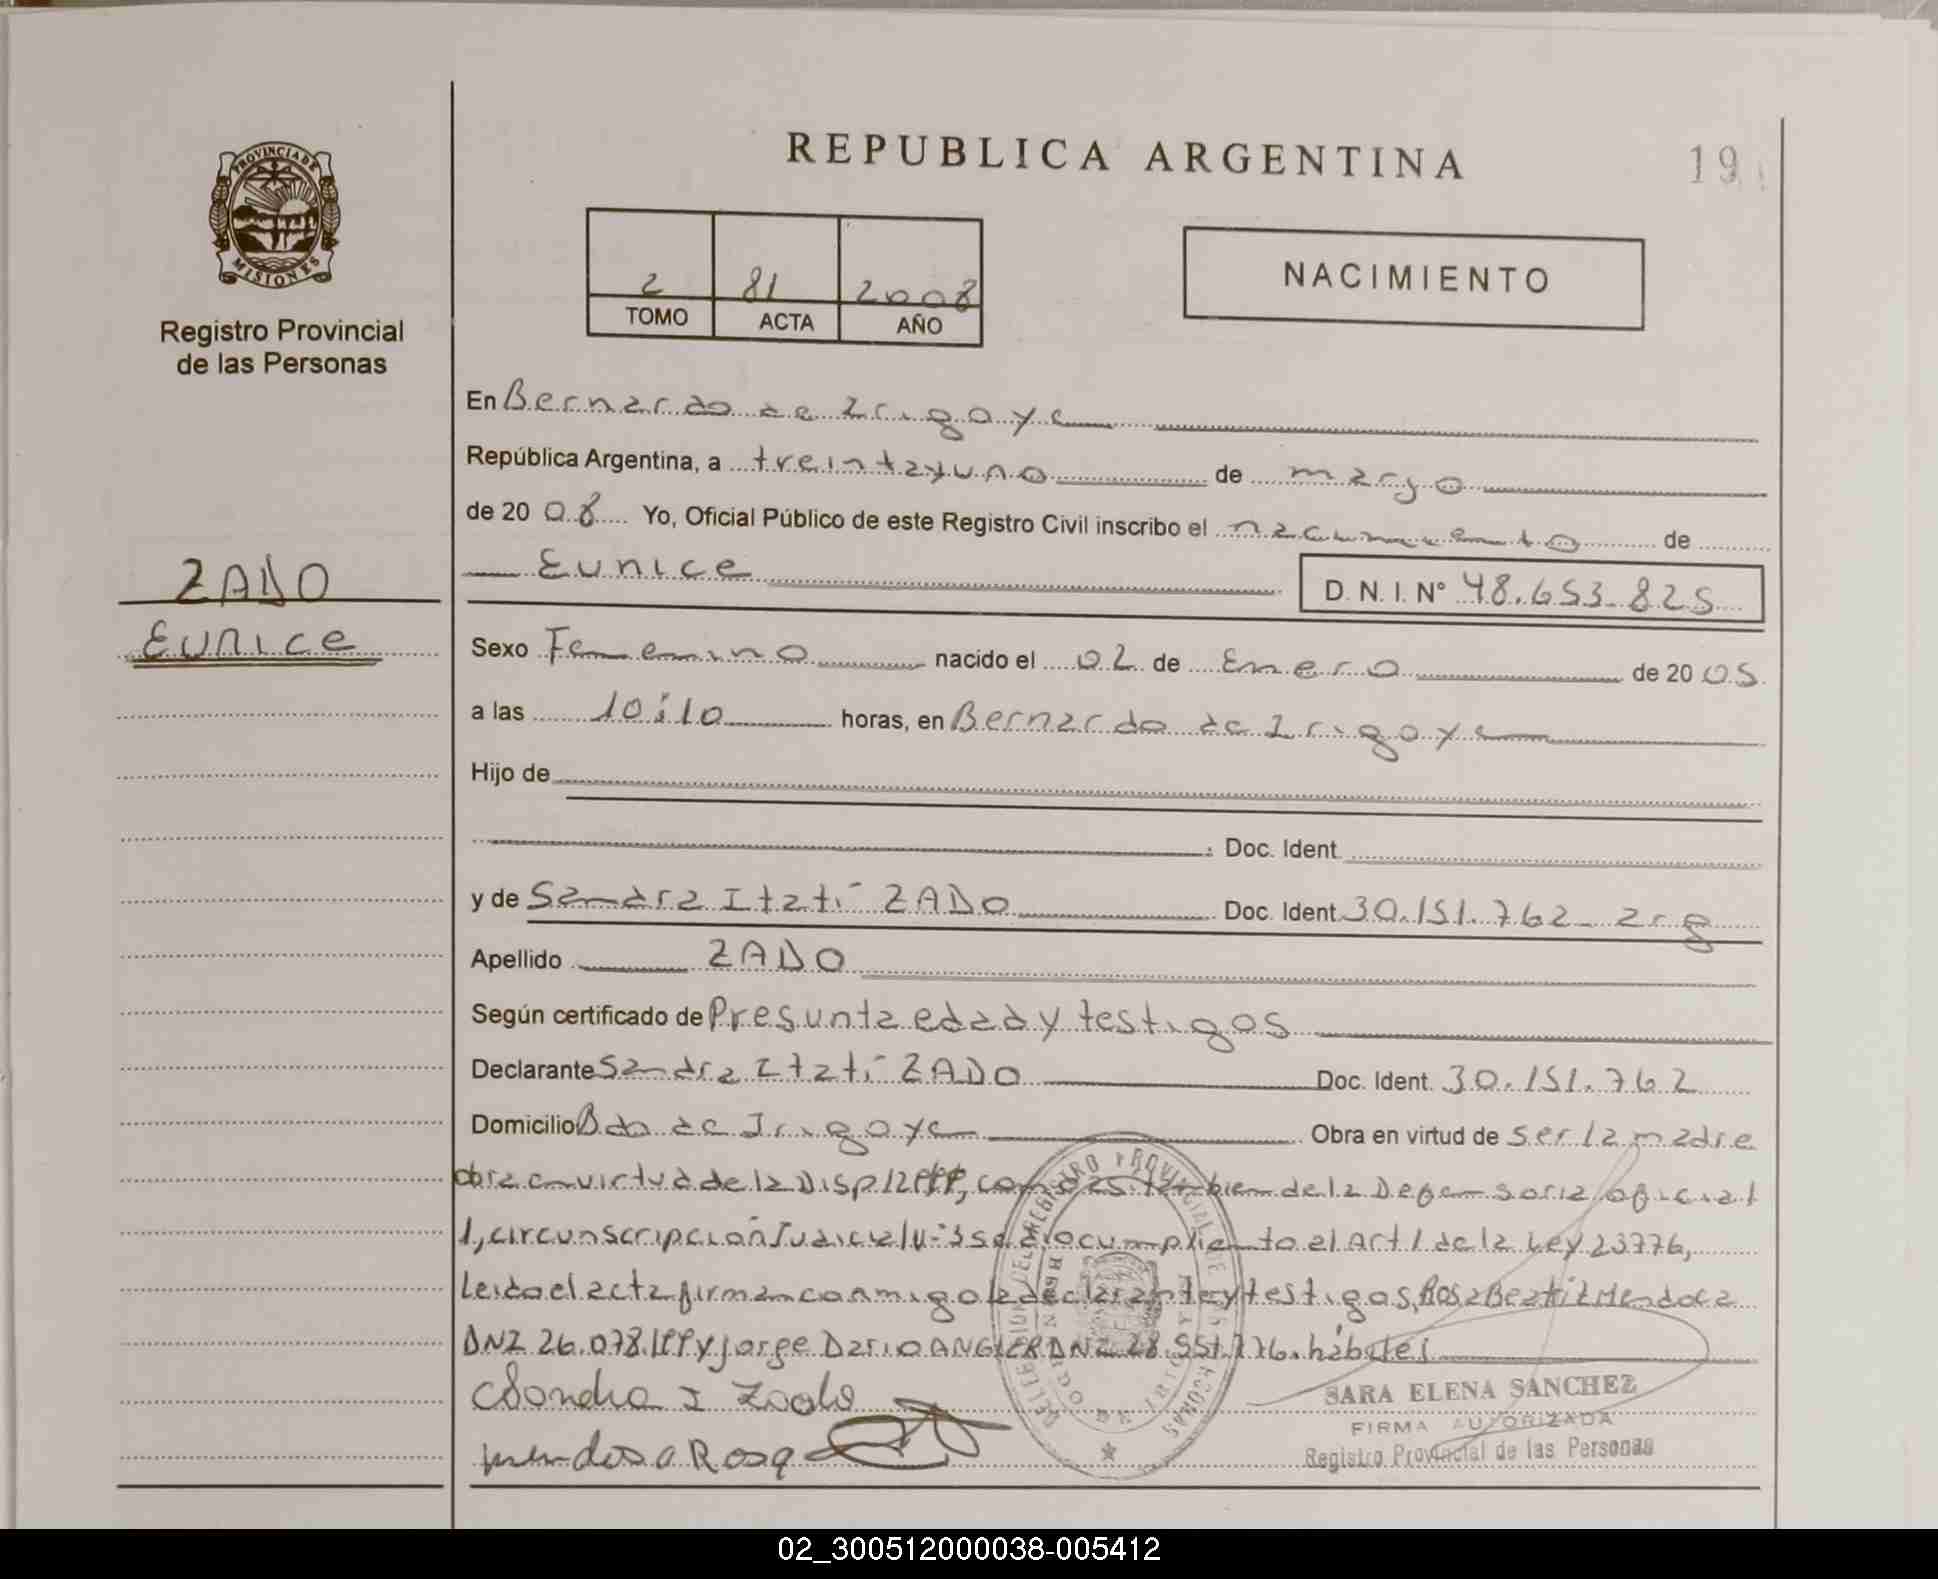 REPUBLICA ARGENTINA
19
PROVINCIA DE
MISIONES
Registro Provincial
de las Personas
2 81 2008
TOMO ACTA AÑO
NACIMIENTO
En Bernardo de Irigoye
República Argentina, a treinta y uno de marzo
de 20 08 Yo, Oficial Público de este Registro Civil inscribo el nacimiento de
Eunice D. N. I. Nº 48.653.825
ZADO
Eunice
Sexo Femenino nacido el 02 de Enero de 20 05
a las 10:10 horas, en Bernardo de Irigoye
Hijo de
Doc. Ident.
y de Sandra Itatí ZADO Doc. Ident. 30.151.762 arg
Apellido ZADO
Según certificado de Presunta edad y testigos
Declarante Sandra Itatí ZADO Doc. Ident. 30.151.762
Domicilio Bdo de Irigoye Obra en virtud de ser la madre
obra en virtud de la Disp como as tambien de la Defensoria oficial
1, circunscripción Judicial cumpliento el Art 1 de la Ley 23776,
Leido el acta firman conmigo la declarante y testigos, Rosa Beatriz Mendoca
DNI 26.078. y Jorge Dario ANGLER DNI 28.551.776. hábiles
Sandra I Zado
mendosa Rosa
SARA ELENA SANCHEZ
FIRMA AUTORIZADA
Registro Provincial de las Personas
02_300512000038-005412